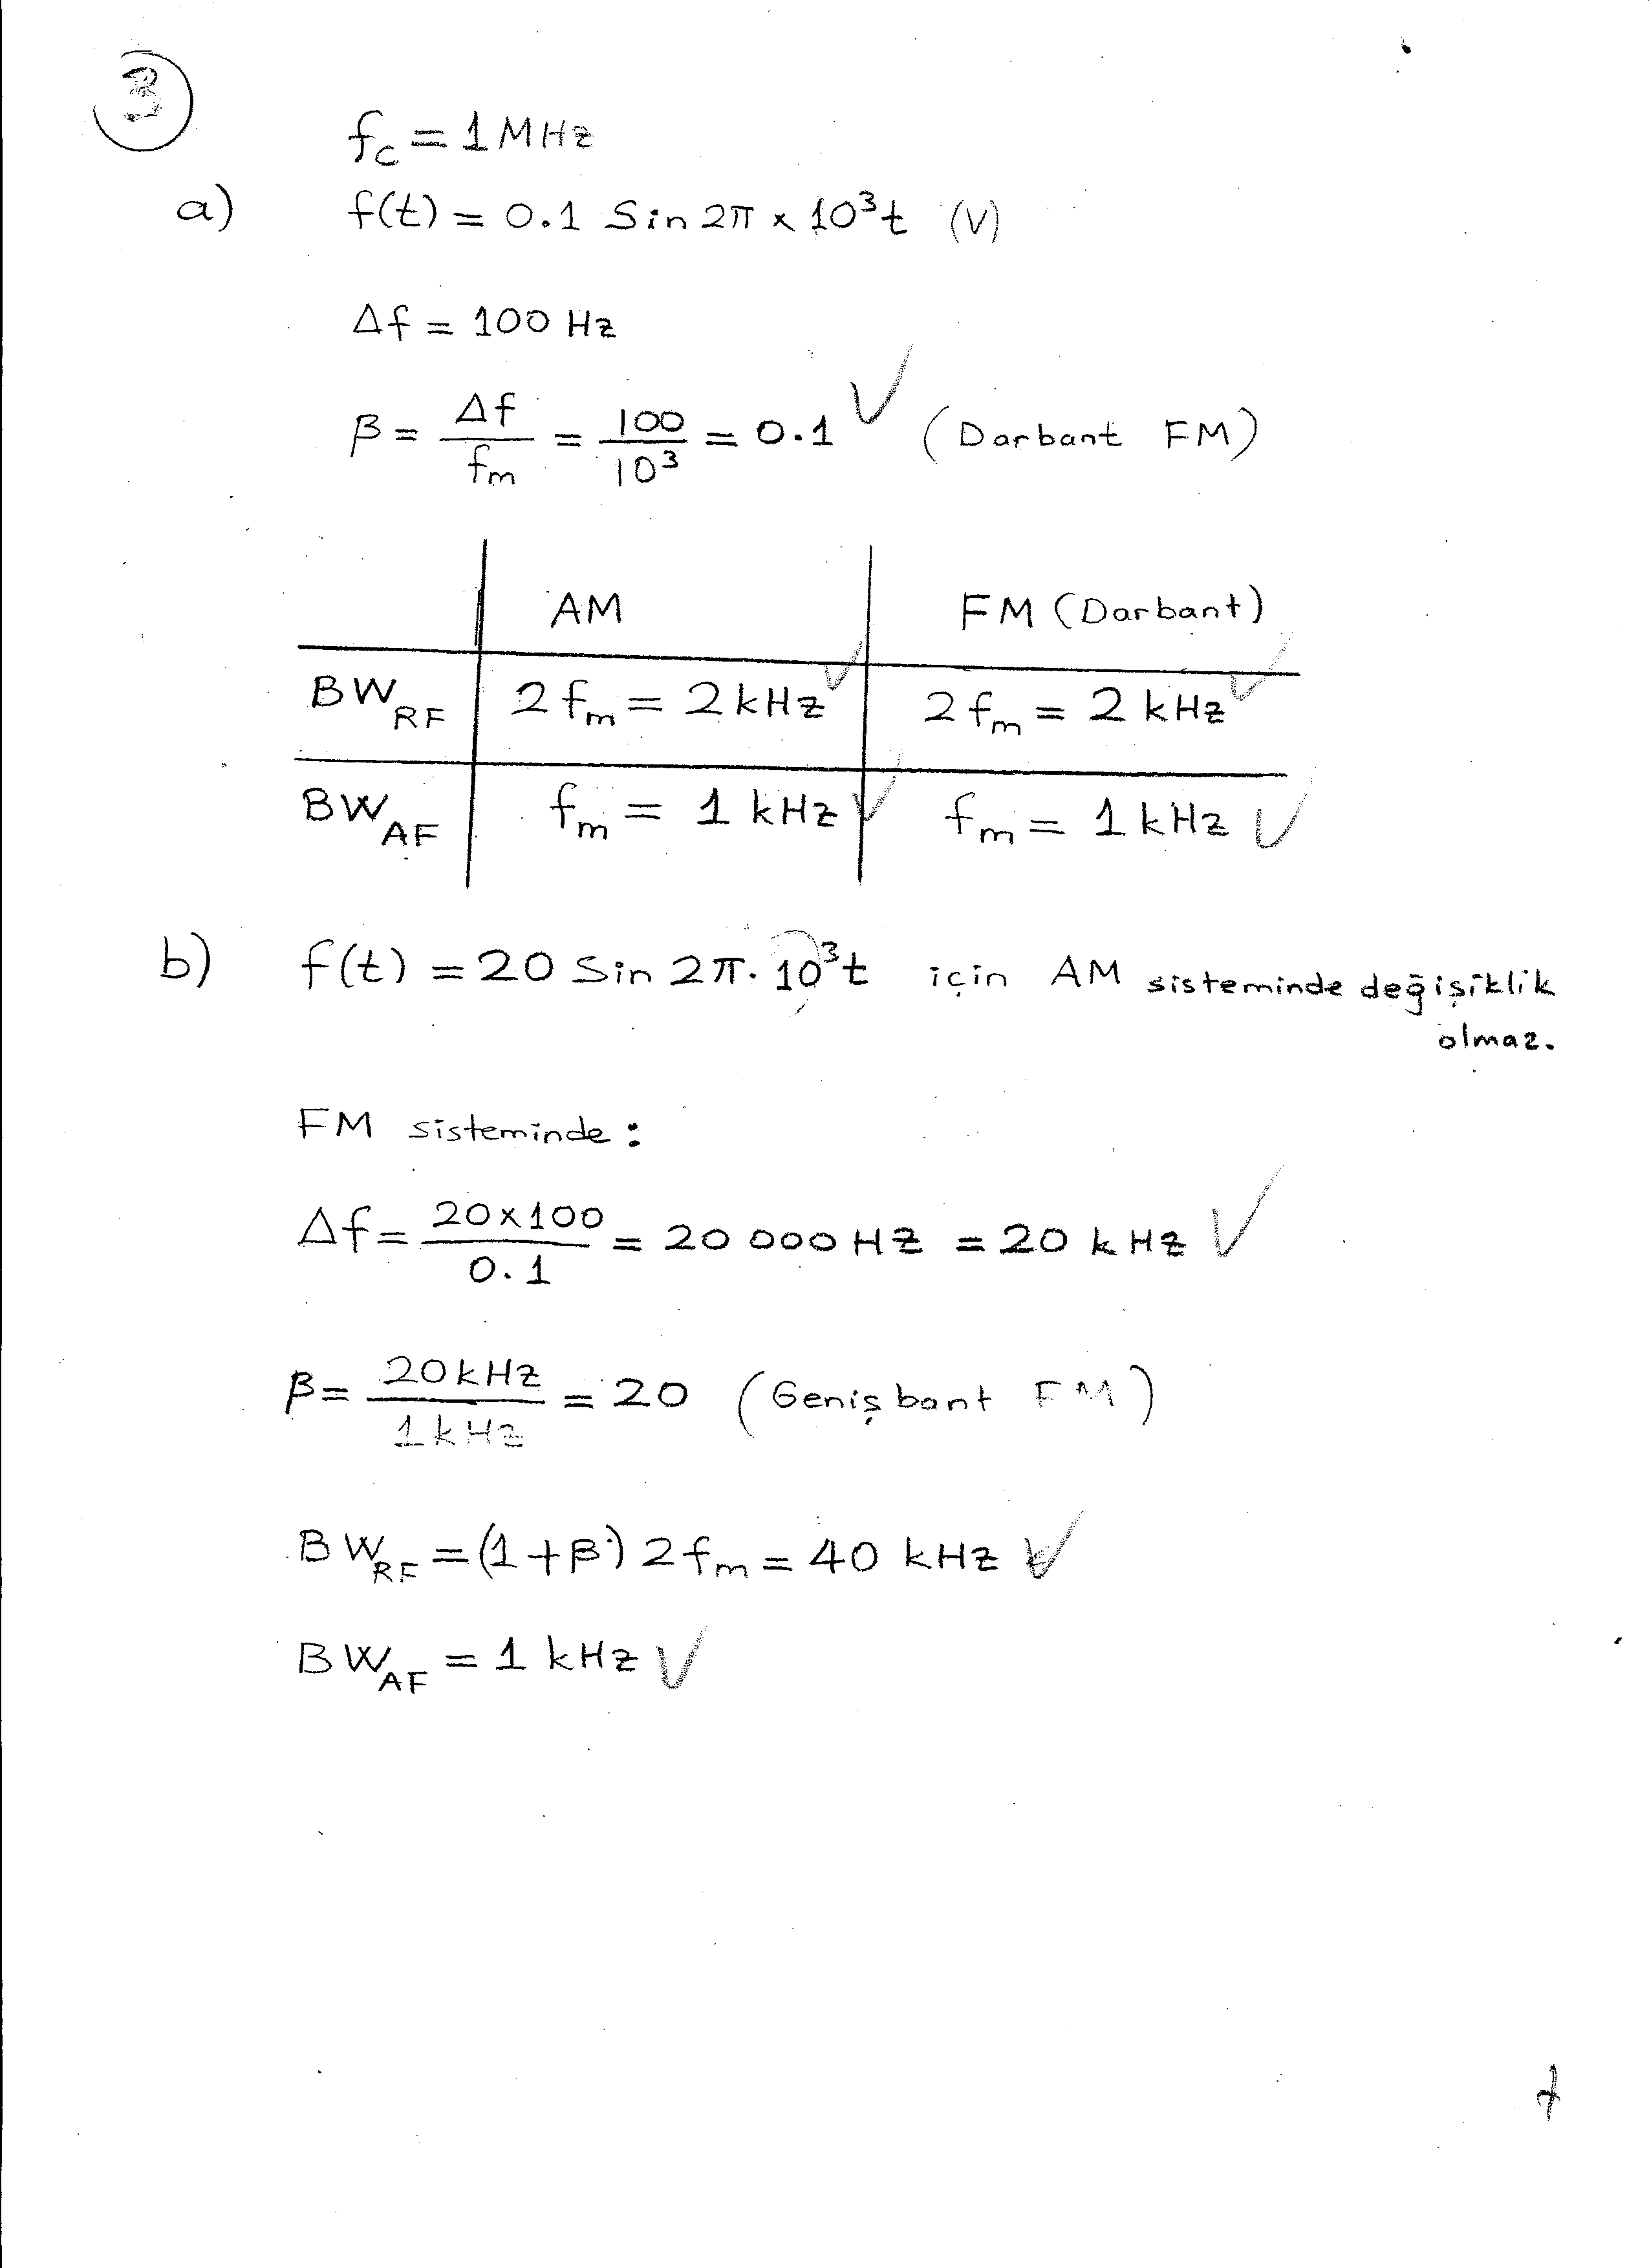 3
f_c = 1 MHz
a) f(t) = 0.1 Sin 2π x 10³t (V)
Δf = 100 Hz
β = Δf / f_m = 100 / 10³ = 0.1 ✓ (Darbant FM)
AM FM (Darbant)
BW_RF 2 f_m = 2 kHz ✓ 2 f_m = 2 kHz ✓
BW_AF f_m = 1 kHz ✓ f_m = 1 kHz ✓
b) f(t) = 20 Sin 2π. 10³t için AM sisteminde değişiklik
olmaz.
FM sisteminde :
Δf = 20x100 / 0.1 = 20 000 HZ = 20 k HZ ✓
β = 20kHz / 1kHz = 20 (Genişbant FM)
BW_RF = (1+β) 2 f_m = 40 kHz ✓
BW_AF = 1 kHz ✓